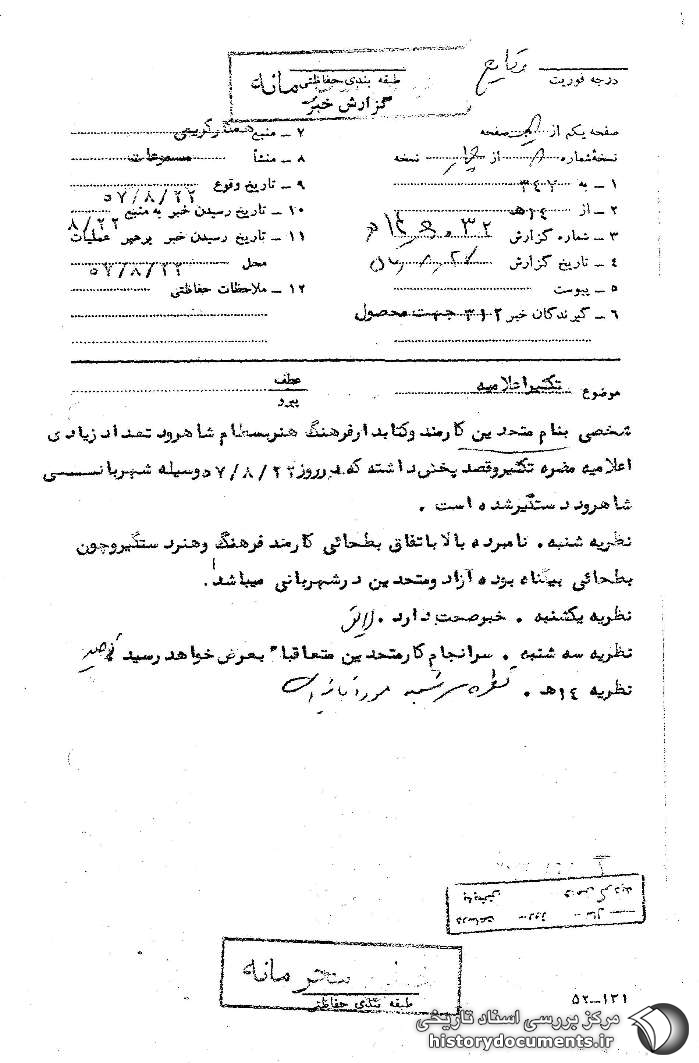 درجه فوریت وقایع
طبقه بندی حفاظتی
گزارش خبر
صفحه یکم از یک صفحه
نسخهٔ شماره از چهار نسخه
۱ ـ به ۳۴۷
۲ ـ از ۱۴هـ
۳ ـ شماره گزارش
۴ ـ تاریخ گزارش
۵ ـ پیوست
۶ ـ گیرندگان خبر ۳۱۲ جهت محصول
۷ ـ منبع همکار کریمی
۸ ـ منشأ مسموعات
۹ ـ تاریخ وقوع ۵۷/۸/۲۲
۱۰ ـ تاریخ رسیدن خبر به منبع ۸/۲۲
۱۱ ـ تاریخ رسیدن خبر برهبر عملیات
محل ۵۷/۸/۲۲
۱۲ ـ ملاحظات حفاظتی
موضوع تکثیر اعلامیه
عطف
پیرو
شخصی بنام متحدین کارمند وکتابدار فرهنگ هنر بسطام شاهرود تعداد زیادی
اعلامیه مضره تکثیر وقصد پخش داشته که در روز ۵۷/۸/۲۲ وسیله شهربانـــی
شاهرود دستگیر شده است .
نظریه شنبه . نامبرده بالا باتفاق بطحائی کارمند فرهنگ وهنر دستگیر وچون
بطحائی بیگناه بوده آزاد ومتحدین درشهربانی میباشد .
نظریه یکشنبه . خبر صحت دارد . لایق
نظریه سه شنبه . سرانجام کار متحدین متعاقباً بعرض خواهد رسید
نظریه ۱۴هـ . نظریه سه شنبه مورد تائید است
طبقه بندی حفاظتی
۵۲ــ۱۳۱
مرکز بررسی اسناد تاریخی
historydocuments.ir